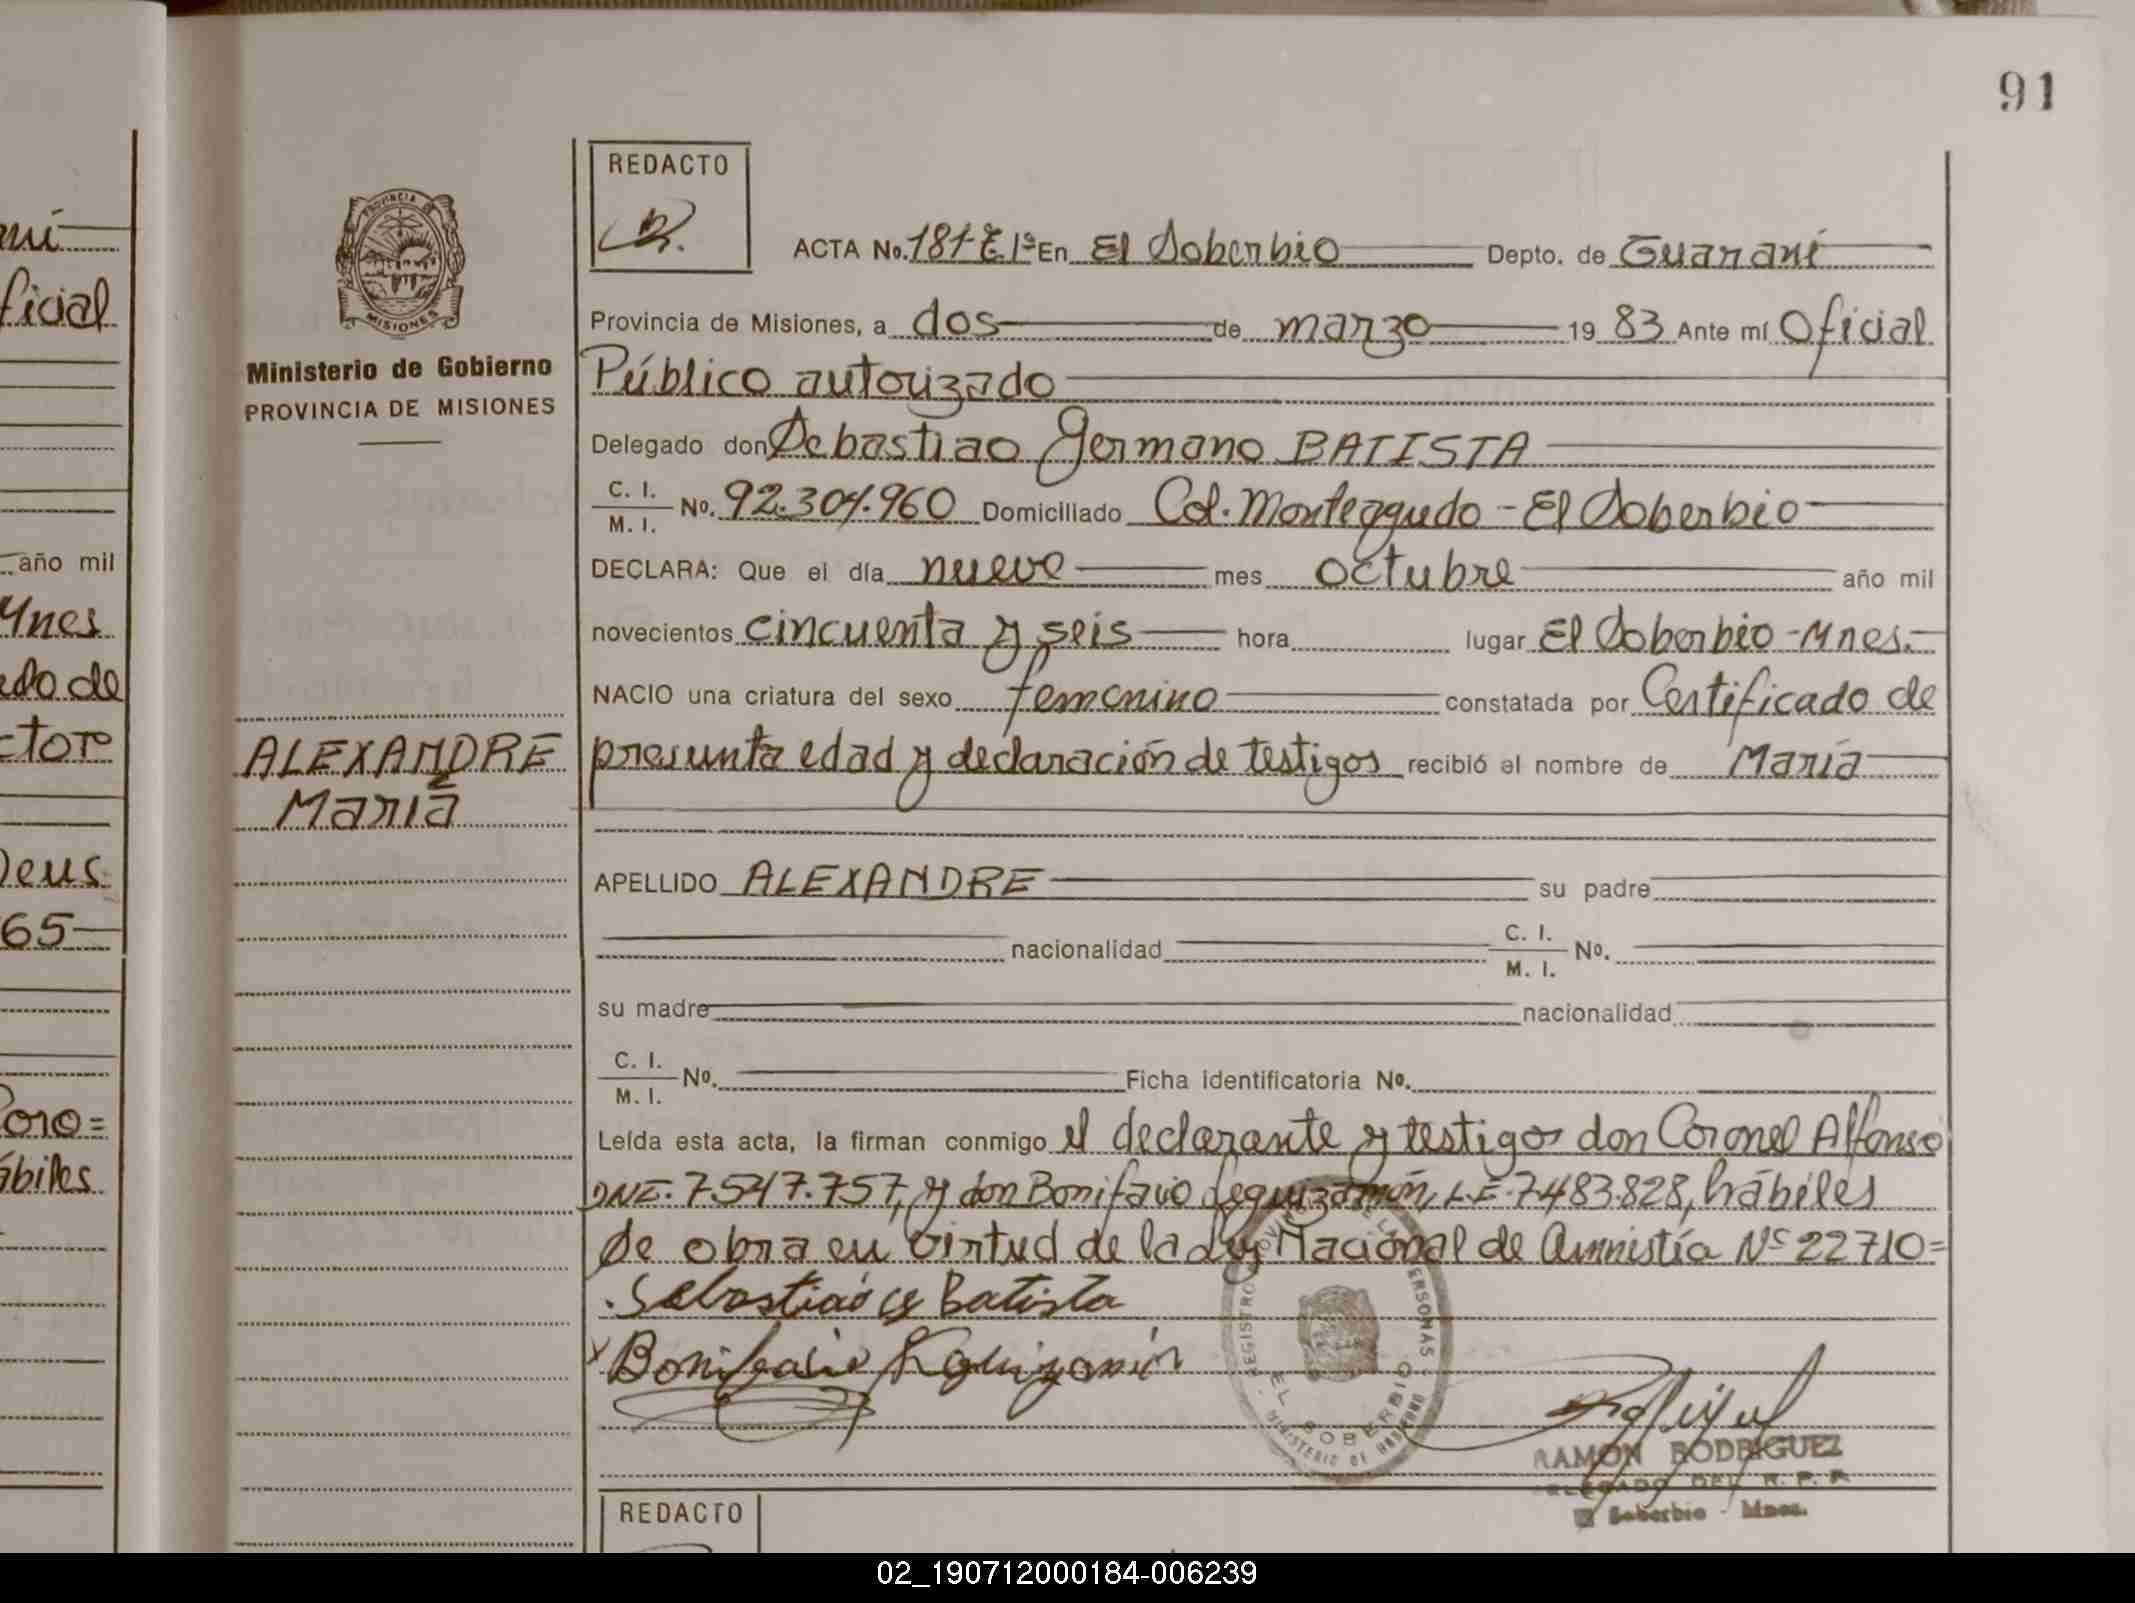 91
REDACTO
ACTA No. 181 En El Soberbio Depto. de Guaraní
Provincia de Misiones, a dos de marzo 1983 Ante mí Oficial
Público autorizado
Delegado don Sebastiao Germano BATISTA
C. I.
M. I. No. 92.304.960 Domiciliado Col. Monteagudo - El Soberbio
DECLARA: Que el día nueve mes octubre año mil
novecientos cincuenta y seis hora lugar El Soberbio - Mnes.
NACIO una criatura del sexo femenino constatada por Certificado de
presunta edad y declaración de testigos recibió el nombre de María
APELLIDO ALEXANDRE su padre
nacionalidad C. I.
M. I. No.
su madre nacionalidad
C. I.
M. I. No. Ficha identificatoria No.
Leída esta acta, la firman conmigo el declarante y testigos don Coronel Alfonso
7.547.757, y don Bonifacio Leguizamón, L.E. 7.483.828, hábiles
de obra en virtud de la Ley Nacional de Amnistía Nº 22710=
Sebastiao G Batista
Bonifacio Leguizamón
EL SOBERBIO
MINISTERIO DE GOBIERNO
RAMON RODRIGUEZ
DELEGADO DEL R. P. P.
El Soberbio - Mnes.
REDACTO
PROVINCIA
MISIONES
Ministerio de Gobierno
PROVINCIA DE MISIONES
ALEXANDRE
María
ficial
año mil
Mnes
ado de
Deus
65
ábiles
02_190712000184-006239